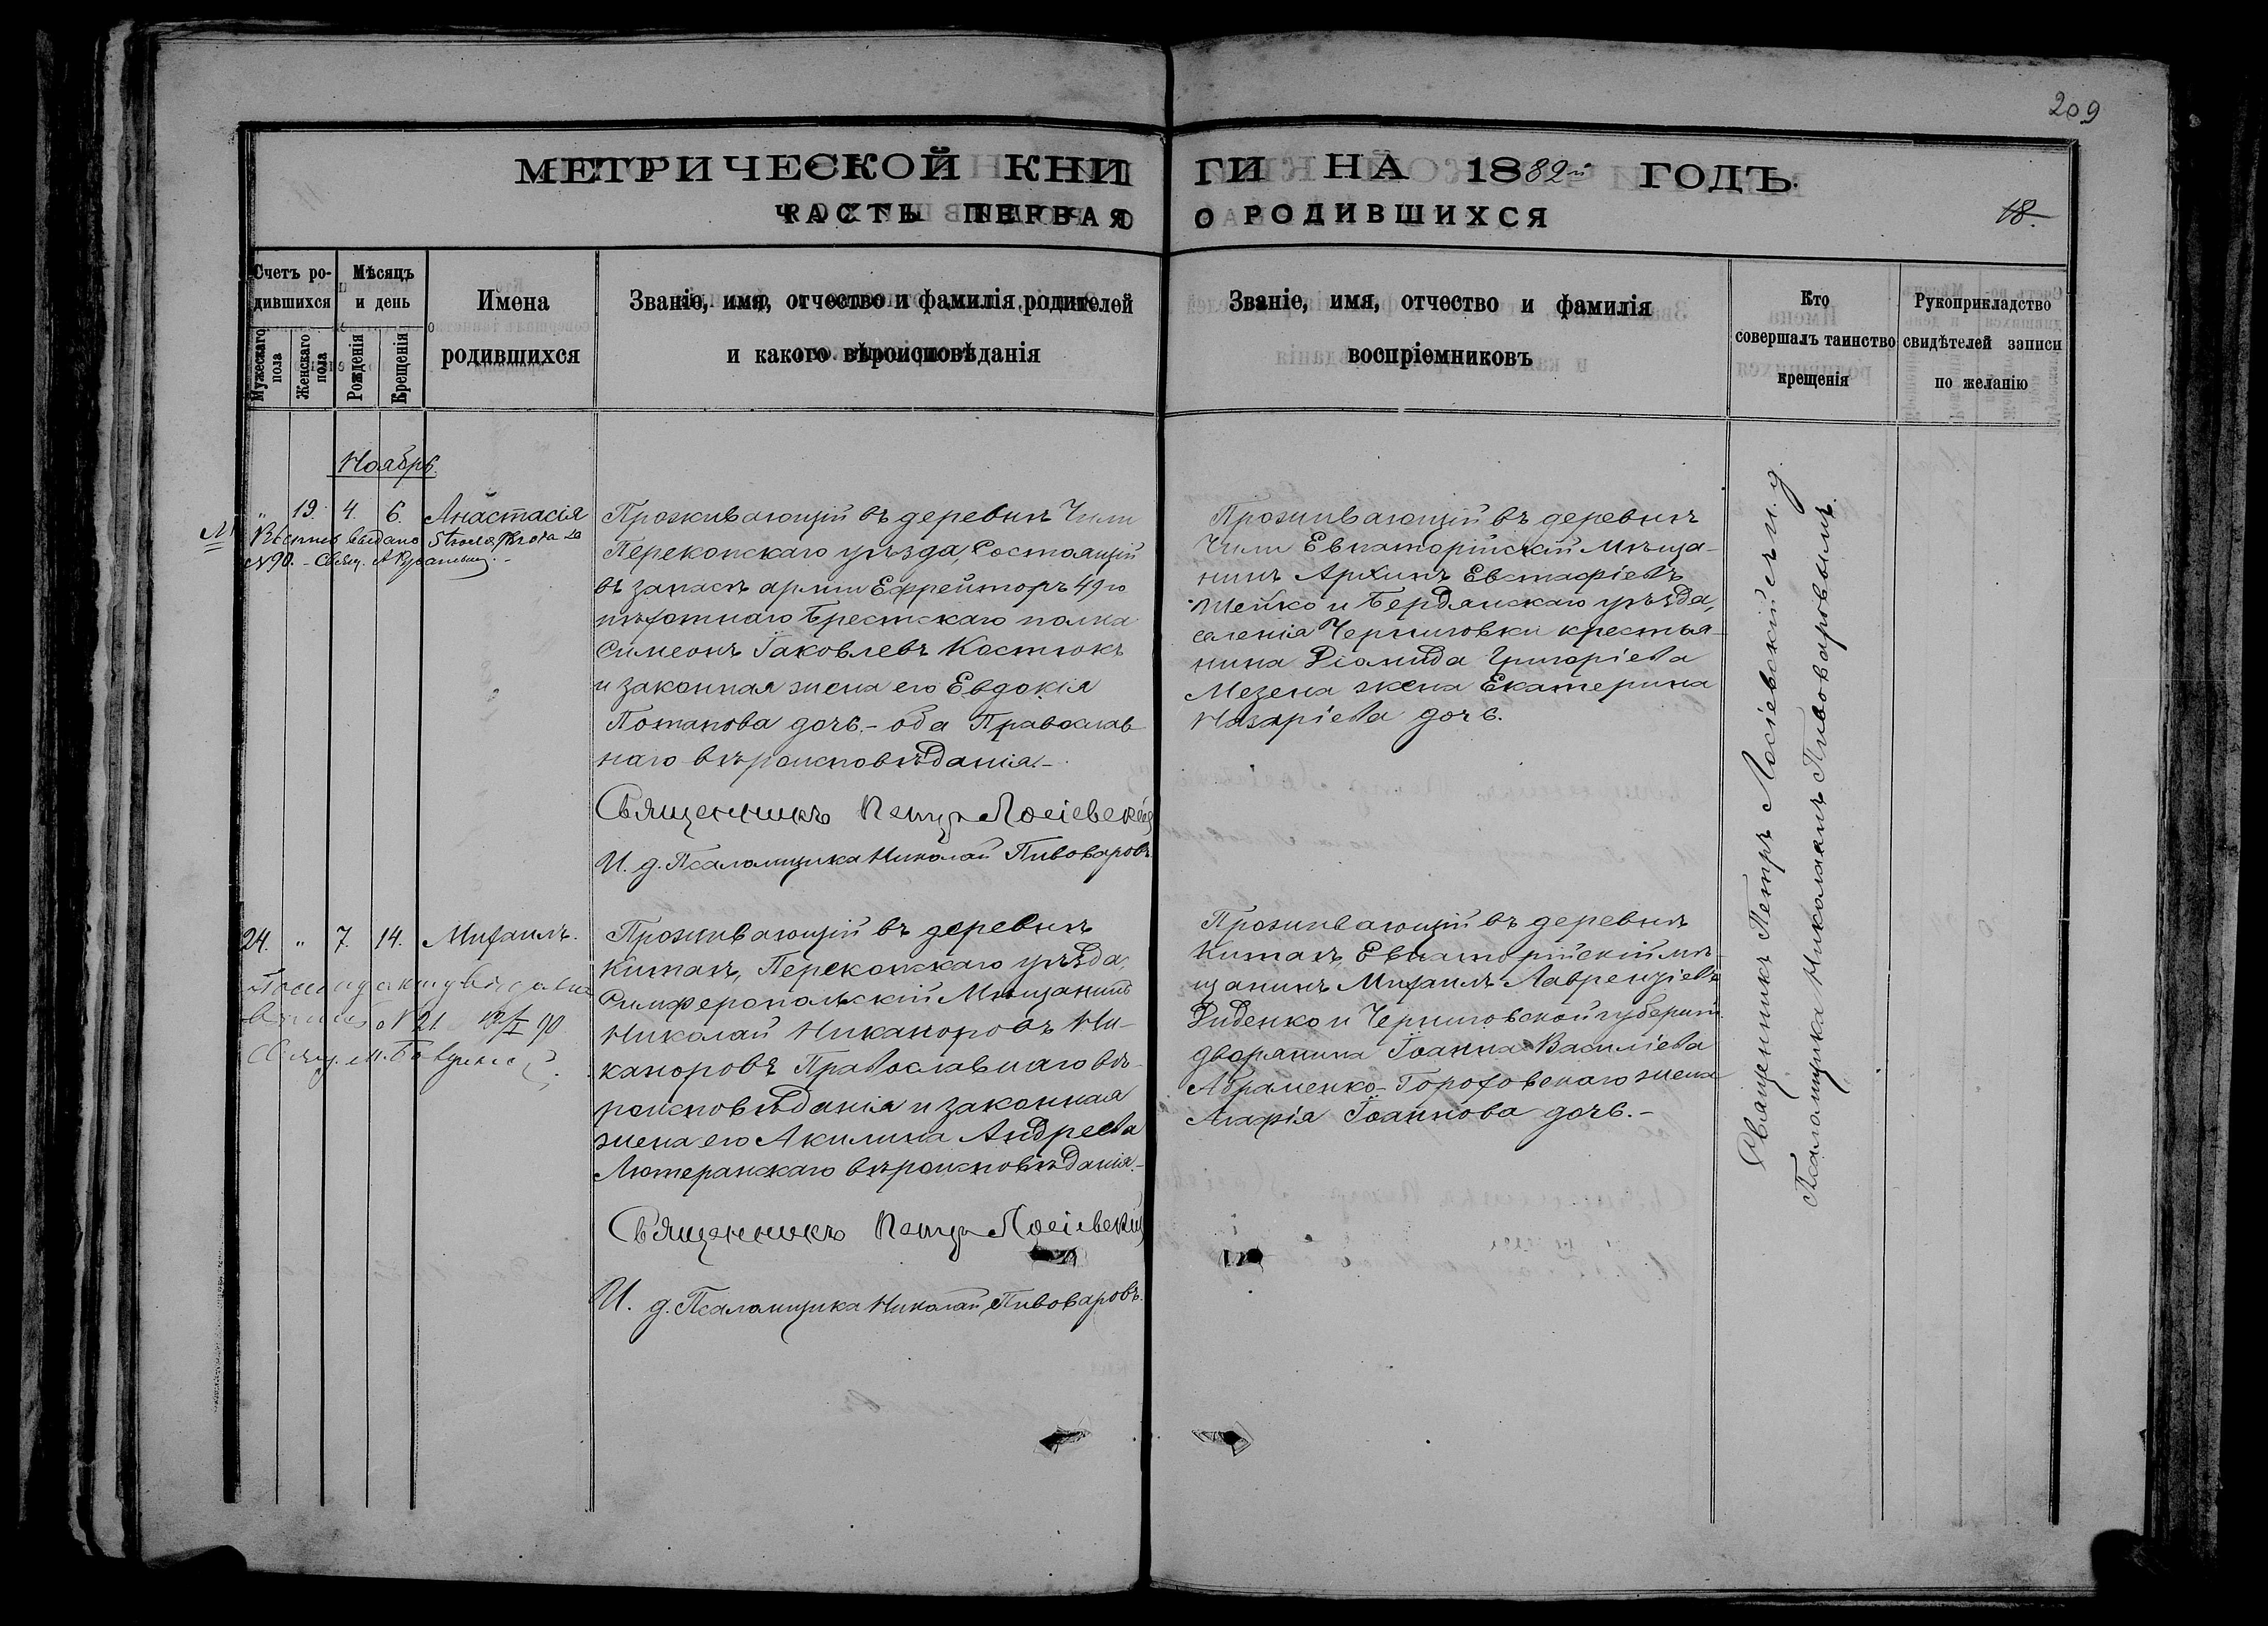 209
МЕТРИЧЕСКОЙ КНИГИ НА 1882й ГОДЪ.
ЧАСТЬ ПЕРВАЯ О РОДИВШИХСЯ
18.
Счетъ родившихся
Мужескаго пола
Женскаго пола
Мѣсяцъ и день
Рожденія
Крещенія
Имена родившихся
Званіе, имя, отчество и фамилія родителей
и какого вѣроисповѣданія
Званіе, имя, отчество и фамилія
воспріемниковъ
Кто
совершалъ таинство
крещенія
Рукоприкладство
свидѣтелей записи
по желанію
Ноябрь.
" 19. 4. 6. Анастасія
№90. - Свящ.
Проживающій въ деревнѣ Чили
Перекопскаго уѣзда, Состоящій
въ запасѣ арміи Ефрейторъ 49го
пѣхотнаго Брестскаго полка
Симеонъ Іаковлевъ Костюкъ
и законная жена его Евдокія
Потапова дочь. - оба Православ
наго вѣроисповѣданія. -
Священникъ Петръ Лосіевскій
И. д. Псаломщика Николай Пивоваровъ.
Проживающій въ деревнѣ
Чили Евпаторійскій Мѣща-
нинъ Архипъ Евстафіевъ
Шейко и Бердянскаго уѣзда,
селенія Черниговки крестья-
нина Діомида Григоріева
Мезена жена Екатерина
Назаріева дочь.
24. " 7. 14. Михаилъ.
№ 21
Проживающій въ деревнѣ
Китаѣ, Перекопскаго уѣзда,
Симферопольскій Мѣщанинъ
Николай Никаноровъ Ни-
каноровъ Православнаго вѣ-
роисповѣданія и законная
жена его Акилина Андреева
Лютеранскаго вѣроисповѣданія. -
Священникъ Петръ Лосіевскій
И. д. Псаломщика Николай Пивоваровъ.
Проживающій въ деревнѣ
Китаѣ, Евпаторійскій мѣ-
щанинъ Михаилъ Лаврентіевъ
Диденко и Черниговской губерніи
дворянина Іоанна Василіева
Абраменко-Гороховскаго жена
Агафія Іоаннова дочь. -
Священникъ Петръ Лосіевскій съ и. д.
Псаломщика Николаемъ Пивоваровымъ.